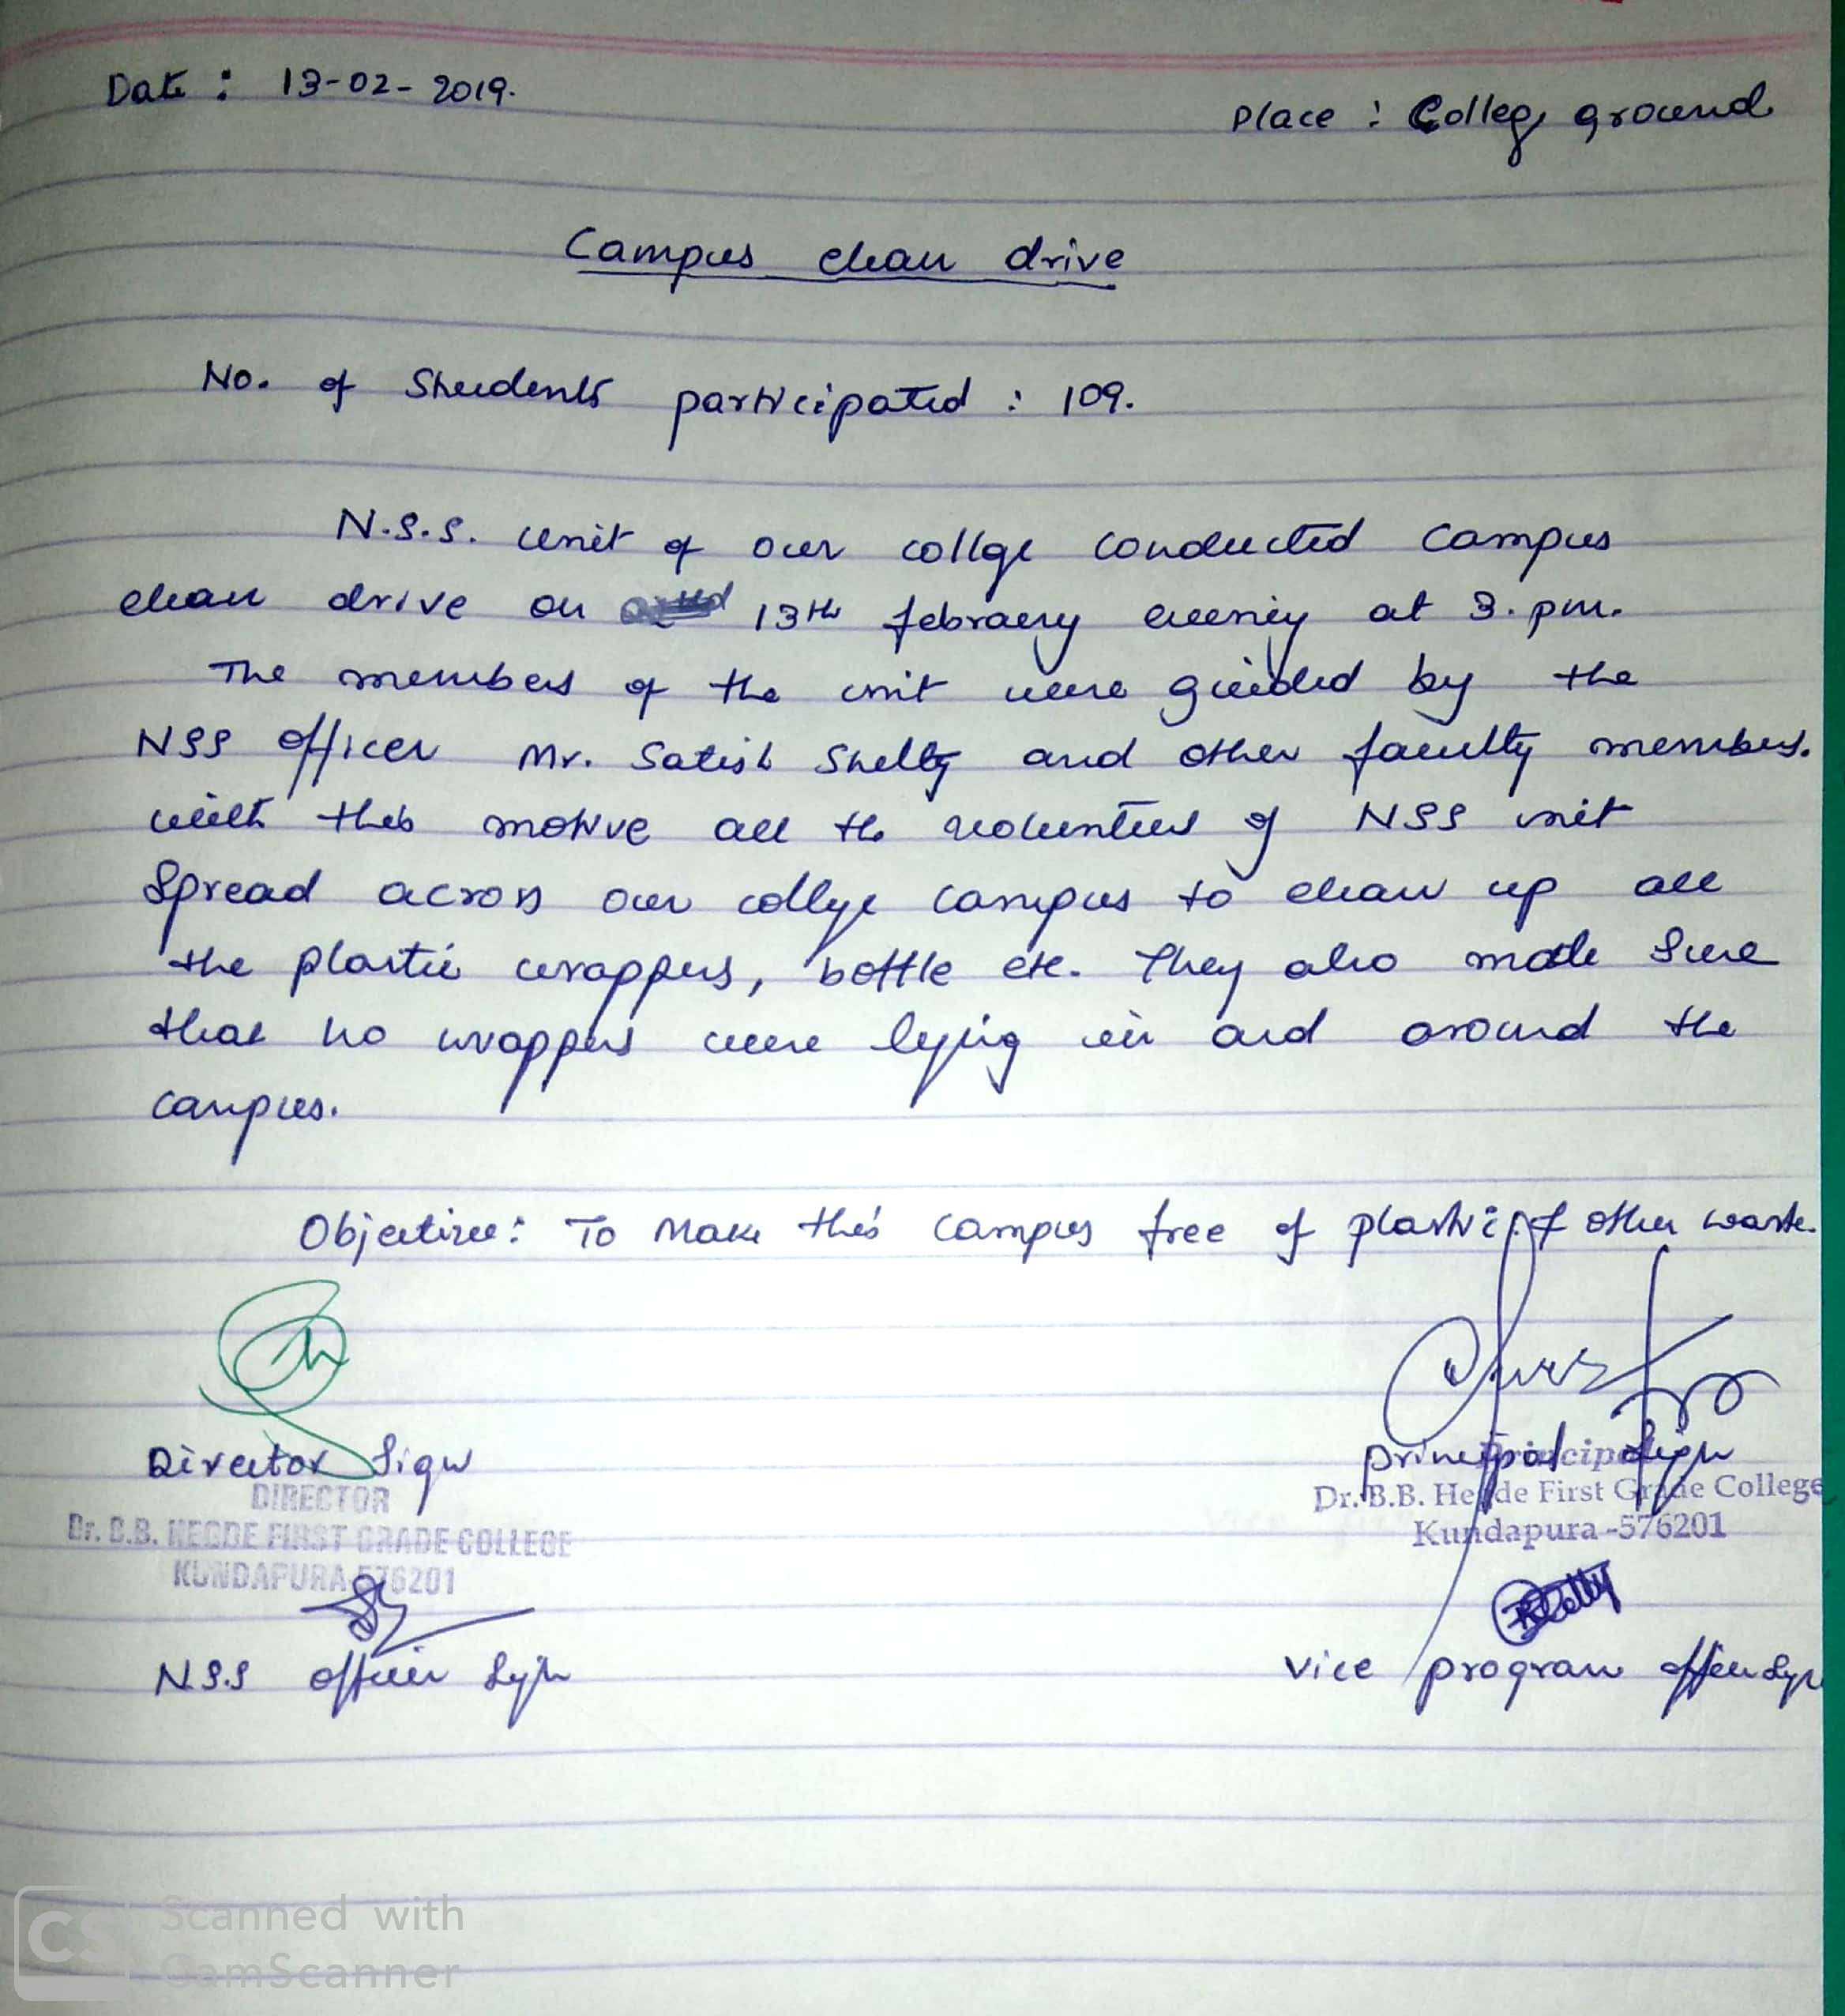 Date : 13-02-2019.
Place : College ground
Campus clean drive
No. of Students participated : 109.
N.S.S. unit of our collge conducted campus
clean drive on 13th febraury evening at 3.pm.
The members of the unit were guided by the
NSS officer Mr. Satish Shetty and other faculty members.
with this motive all the volunteers of NSS unit
Spread across our college campus to clean up all
the plastic wrappers, bottle etc. They also made sure
that no wrappers were lying in and around the
campus.
Objective: To Make this campus free of plastic & other waste.
Director Sign
DIRECTOR
Dr. B.B. HEGDE FIRST GRADE COLLEGE
KUNDAPURA 576201
Principal Sign
Principal
Dr. B.B. Hegde First Grade College
Kundapura -576201
N.S.S officer Sign
Vice program officer Sign
CS Scanned with
CamScanner